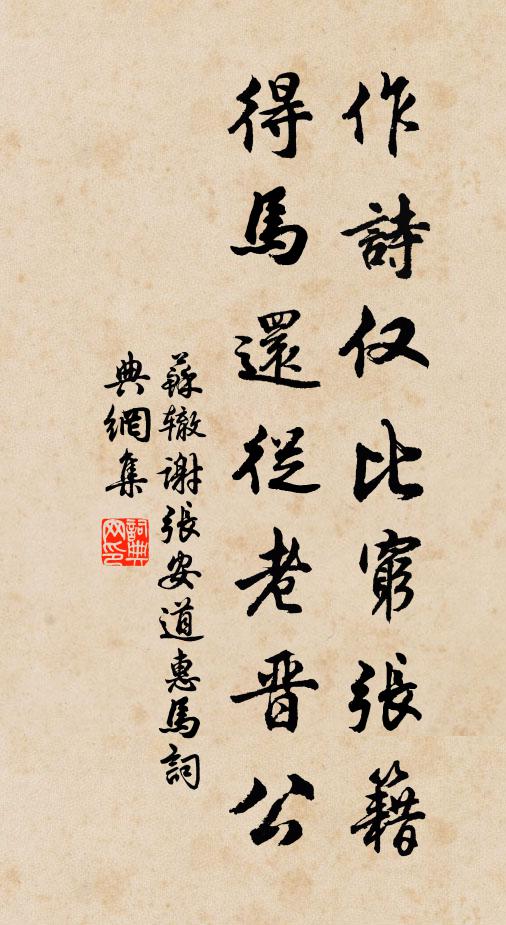 作詩仅比窮張籍
得馬還從老晋公
蘇辙谢張安道惠馬詞
典網集
詞典网印